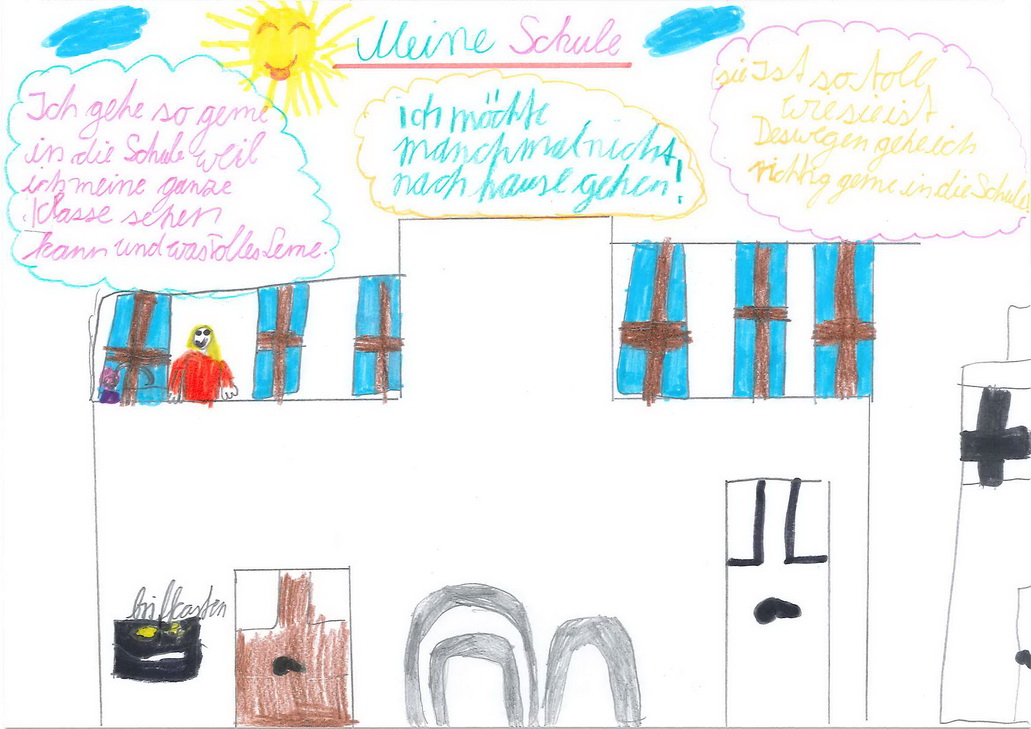 Meine Schule
Ich gehe so gerne
in die Schule weil
ich meine ganze
Klasse sehen
kann und was tolles Lerne.
ich möchte
manchmal nicht
nach hause gehen!
sie Ist so toll
wie sie ist
Deswegen gehe ich
richtig gerne in die Schule
brifkasten